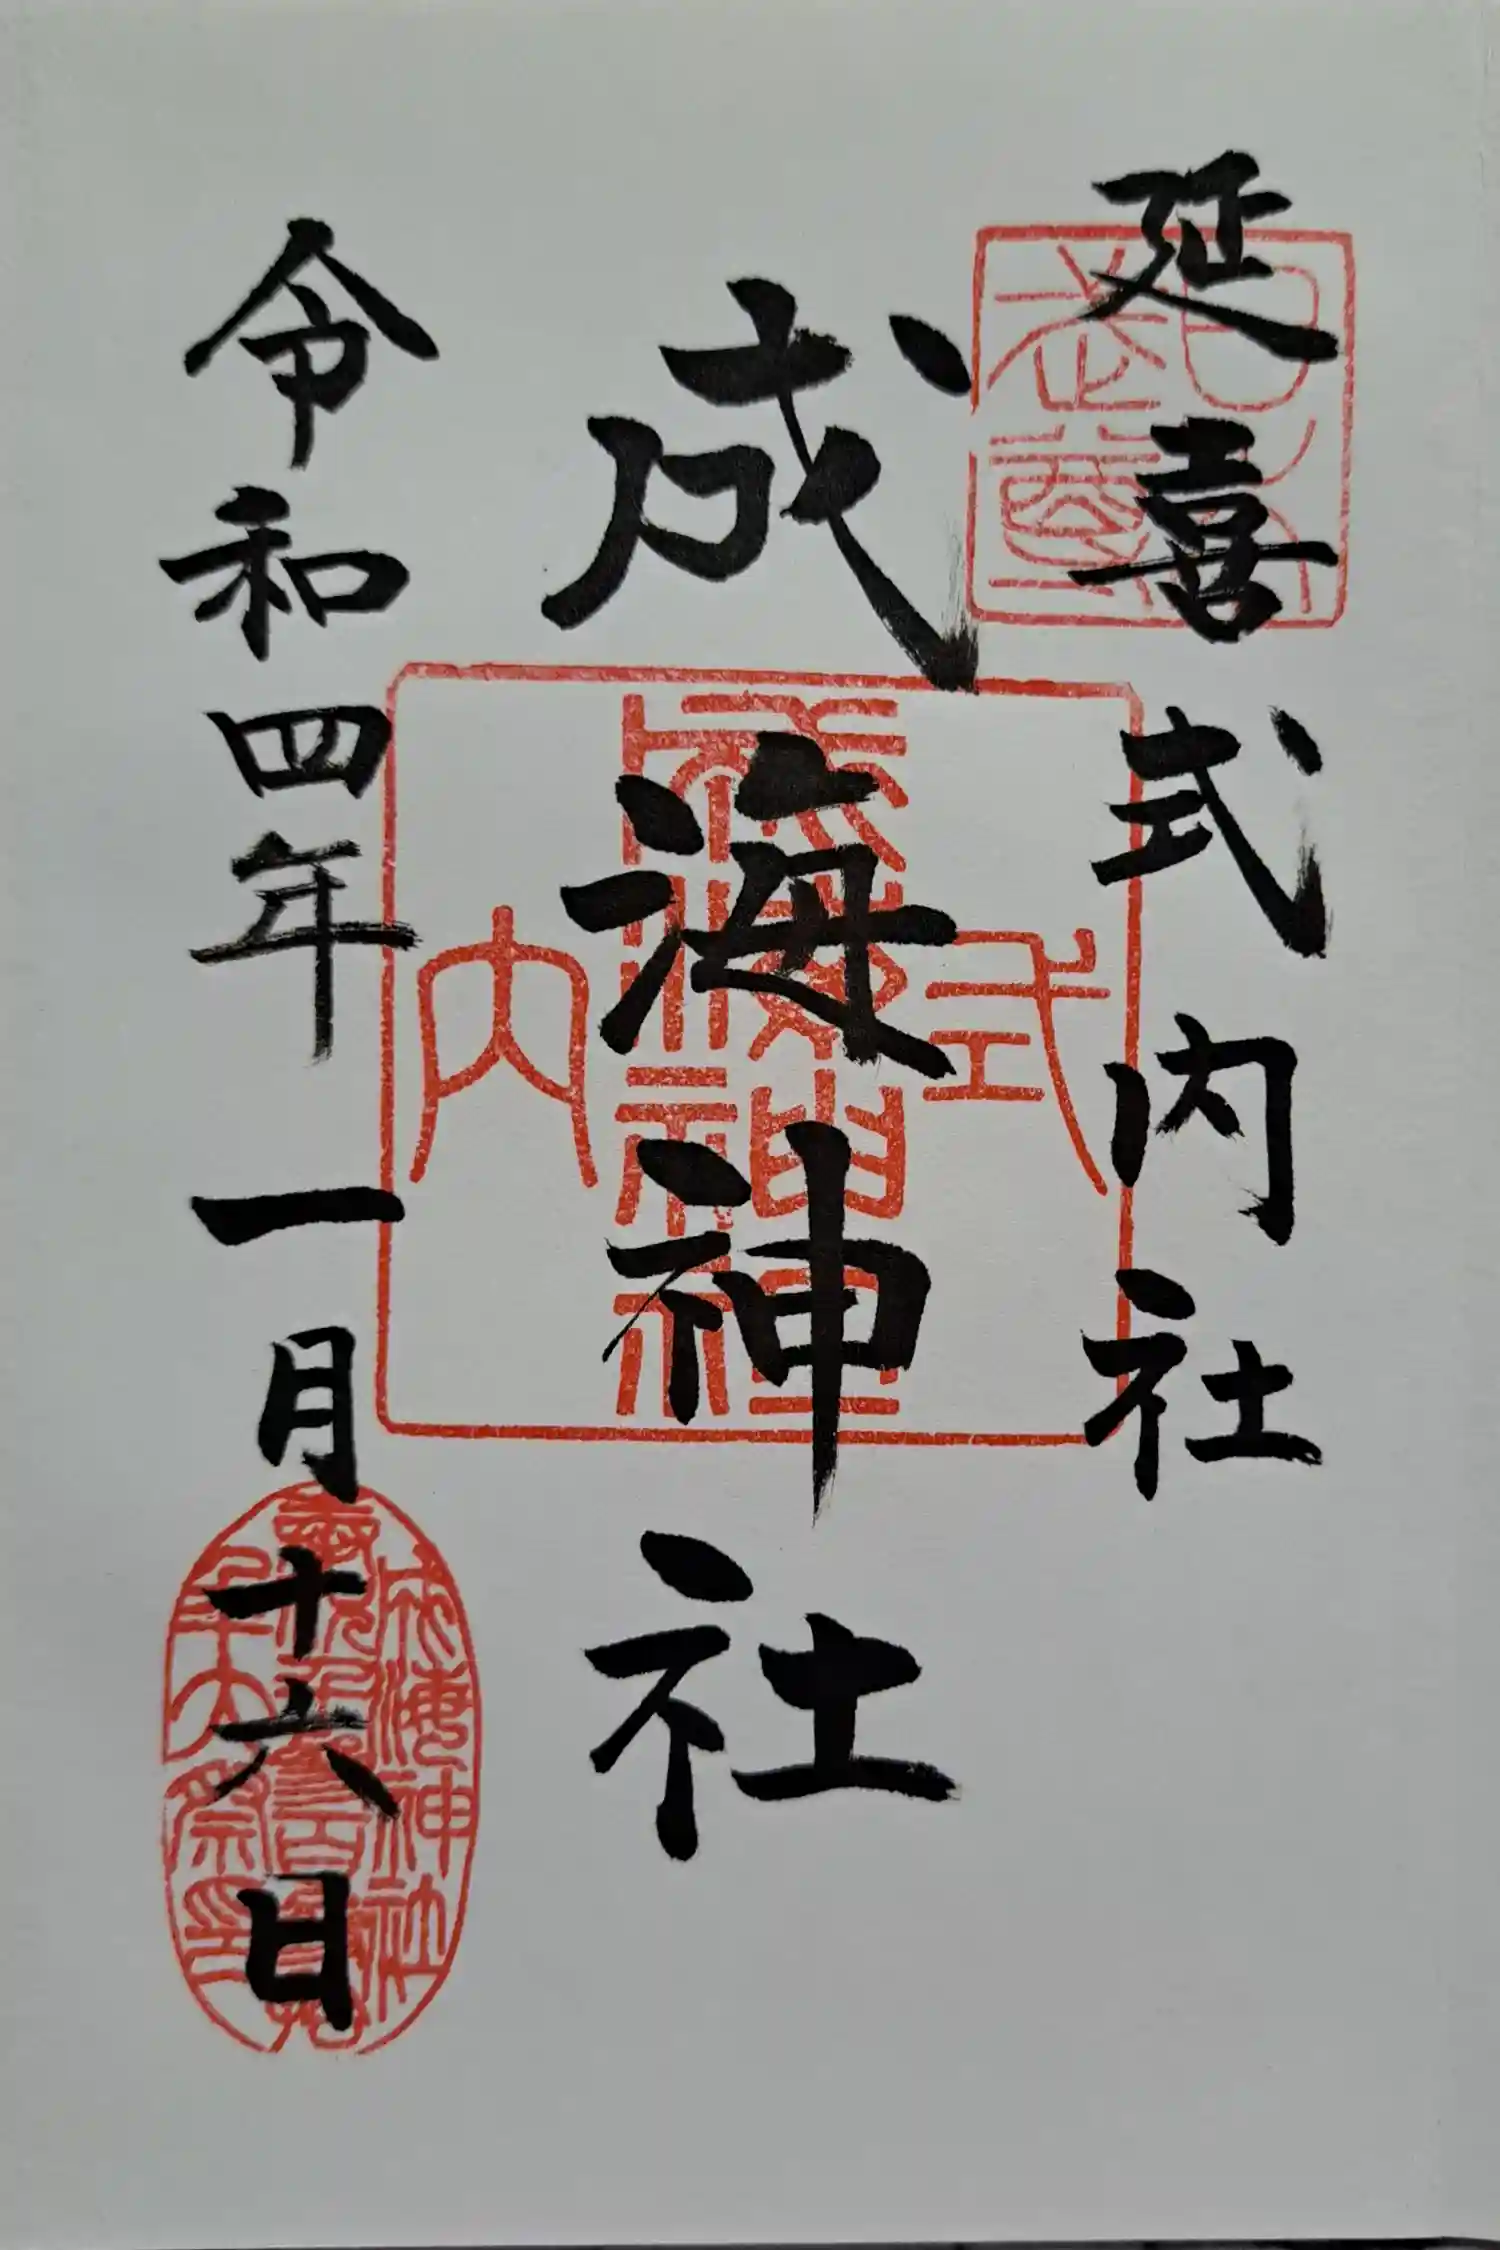 延喜式内社
成海神社
令和四年一月十六日
式
成海神社
内
成海神社
大祭